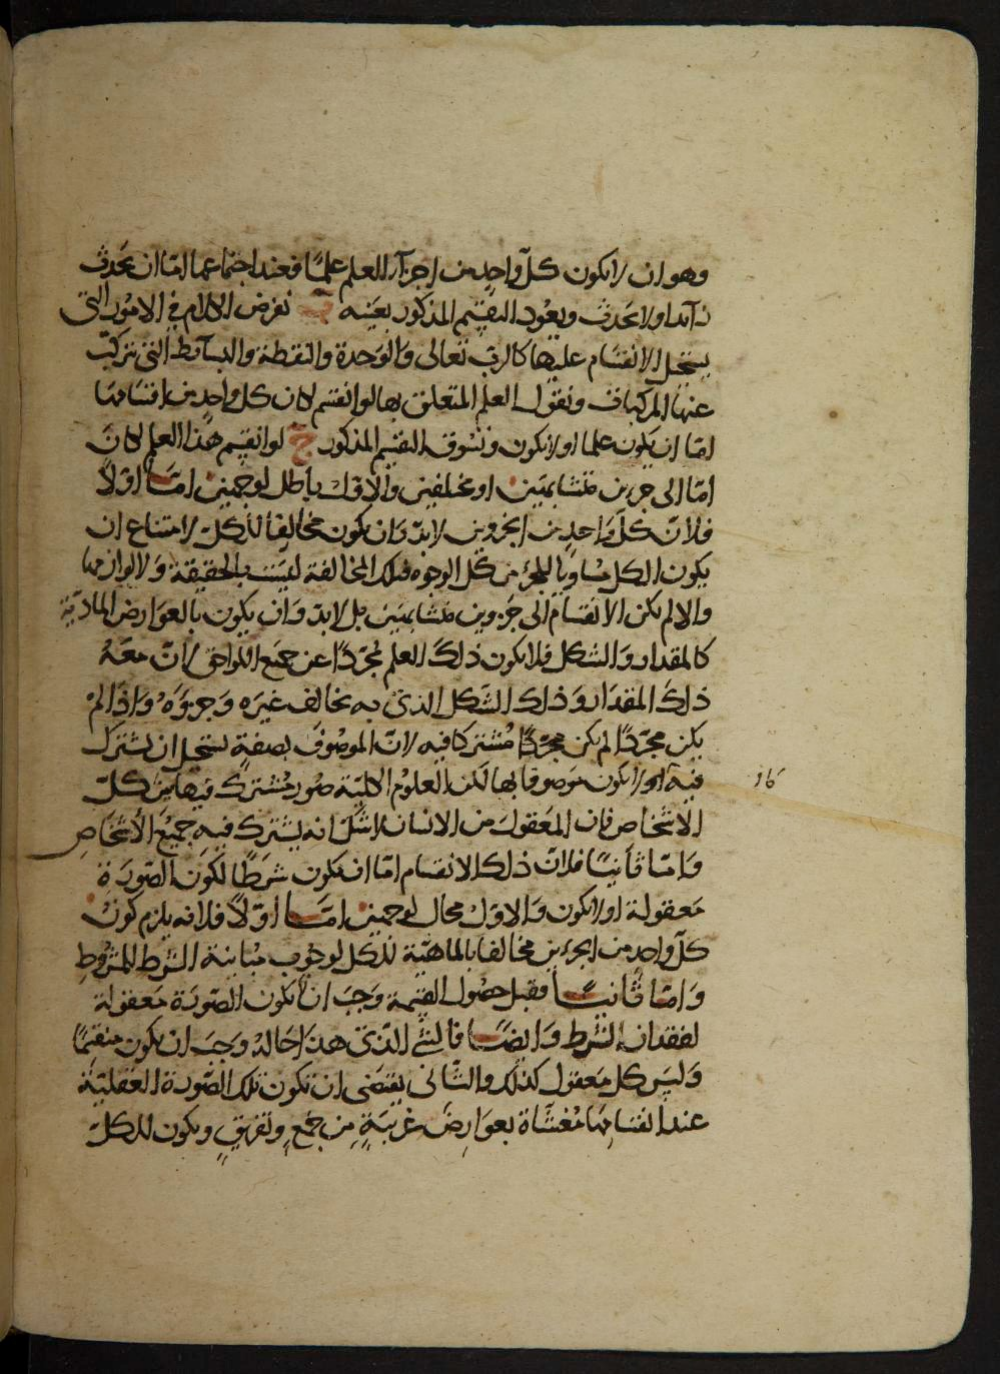 وهو ان لا يكون كل واحد من اجزاء العلم علمًا فعند اجتماعها اما ان يحدث
زائد او لا يحدث ويعود التقسيم المذكور بعينه ب نفرض الكلام في الامور التي
يستحيل الانقسام عليها كالرب تعالى والوحدة والنقطة والبسائط التي تتركب
عنها المركبات ونقول العلم المتعلق بها لو انقسم لكان كل واحد من اقسامها
اما ان يكون علما او لا يكون ونسوق التقسيم المذكور ج لو انقسم هذا العلم لكان
اما الى جزءين متشابهين او مختلفين والاول باطل لوجهين اما اولًا
فلان كل واحد من الجزوين لا بد وان يكون مخالفًا للكل لامتناع ان
يكون الكل مساويا للجزء من كل الوجوه فتلك المخالفة ليست بالحقيقة ولا لوازمها
والا لم يكن الانقسام الى جزوين متشابهين بل لا بد وان يكون بالعوارض المادية
كالمقدار والشكل فلا يكون ذلك العلم مجردًا عن جميع اللواحق لان معه
ذلك المقدار وذلك الشكل الذي به يخالف غيره وجزوه واذا لم
يكن مجردًا لم يكن مجردًا مشتركا فيه لان الموصوف بصفة يستحيل ان يشترك
فيه او لا يكون موصوفا بها لكن العلوم الكلية صور مشترك فيها بين كل
الاشخاص فان المعقول من الانسان لا شك انه يشترك فيه جميع الاشخاص
واما ثانيًا فلان ذلك الانقسام اما ان يكون شرطًا لكون الصورة
معقولة او لا يكون والاول محال لوجهين اما اولًا فلانه يلزم كون
كل واحد من الجزءين مخالفا بالماهية للكل لوجوب مباينة الشرط المشروط
واما ثانيًا فقبل حصول القسمة وجب ان لا يكون الصورة معقولة
لفقدان الشرط وايضًا فالشيء الذي هذا حاله وجب ان يكون منقسمًا
وليس كل معقول كذلك والثاني يقتضي ان تكون تلك الصورة العقلية
عند انقسامها مغشاة بعوارض غريبة من جمع وتفريق ويكون للكل